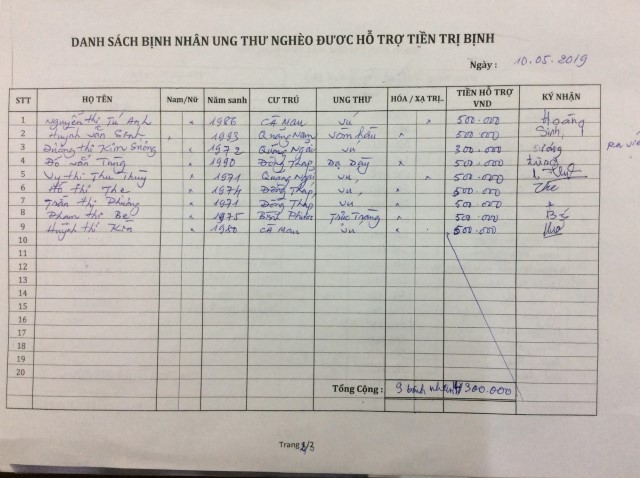 DANH SÁCH BỊNH NHÂN UNG THƯ NGHÈO ĐƯỢC HỖ TRỢ TIỀN TRỊ BỊNH
Ngày : 10.05.2019
STT HỌ TÊN Nam/Nữ Năm sanh CƯ TRÚ UNG THƯ HÓA / XẠ TRỊ.. TIỀN HỖ TRỢ VND KÝ NHẬN
1 Nguyễn thị Tú Anh x 1986 Cà Mau Vú x 500.000 Hoàng
2 Huỳnh văn 1993 Quảng Nam Vòm hầu x 500.000 Sinh
3 thị Kim x 1972 Quảng Ngãi Vú x 300.000
4 Đỗ văn Tùng x 1990 Đồng Tháp Dạ Dày x 500.000 tùng
5 Vy thị Thu Thủy x 1971 Quảng Ngãi Vú x 500.000
6 Hồ thị The x 1974 Đồng Tháp Vú x 500.000 The
7 Trần thị Phượng x 1971 Đồng Tháp Vú x 500.000
8 Phạm thị Bé x 1975 Bình Phước Trực Tràng x 500.000 Bé
9 Huỳnh thị x 1980 Cà Mau Vú x 500.000
10
11
12
13
14
15
16
17
18
19
20
Tổng Cộng : 9 bịnh nhân 4.300.000